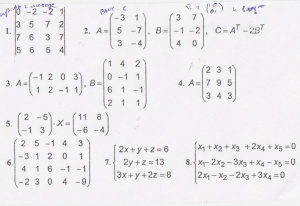 3 -2 -2 1
3 5 7 2
1. 7 6 3 7
5 6 5 4
2. A = (-3 1; 5 -7; 3 -4), B = (3 7; -1 -2; 4 0), C = Aᵀ - 2Bᵀ
3. A = (-1 2 0 3; 1 2 -1 1), B = (1 4 2; 0 -1 1; 6 1 -1; 2 1 1)
4. A = (2 3 1; 7 9 5; 3 4 3)
5. (2 -5; -1 3) · X = (11 8; -6 -4)
6. (2 5 -1 4 3; -3 1 2 0 1; 4 1 6 -1 -1; -2 3 0 4 -9)
7. {2x + y + z = 6
2y + z = 13
3x + y + 2z = 8
8. {x₁ + x₂ + x₃ + 2x₄ + x₅ = 0
x₁ - 2x₂ - 3x₃ + x₄ - x₅ = 0
2x₁ - x₂ - 2x₃ + 3x₄ = 0